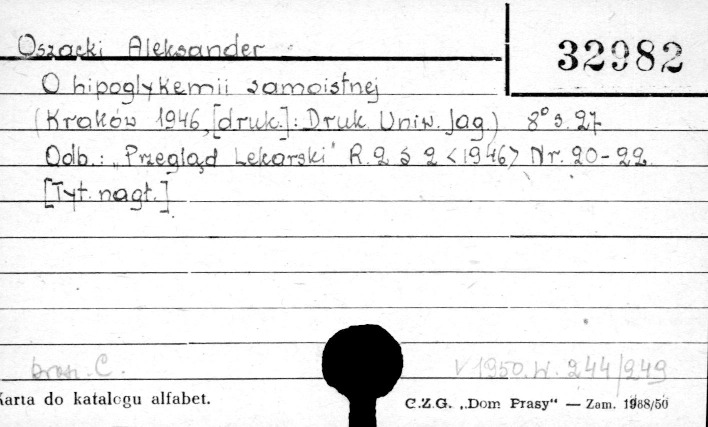 Oszacki Aleksander
32982
O hipoglykemii samoistnej
(Kraków 1946, [druk.]: Druk. Uniw. Jag) 8° s. 27
Odb.: „Przegląd Lekarski" R. 2 S 2 <1946> Nr. 20-22.
[Tyt. nagł.]
brosz. C.
V 1950. W. 244/249
Karta do katalogu alfabet.
C.Z.G. „Dom Prasy" — Zam. 1988/50